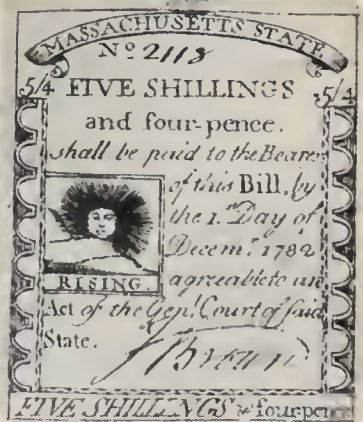 MASSACHUSETTS STATE
No 2118
5/4 FIVE SHILLINGS 5/4
and four-pence.
shall be paid to the Bearer
of this Bill, by
the 1.st Day of
Decem.r 1782
RISING. agreeable to an
Act of the Genl. Court of said
State.
FIVE SHILLINGS & four-pence